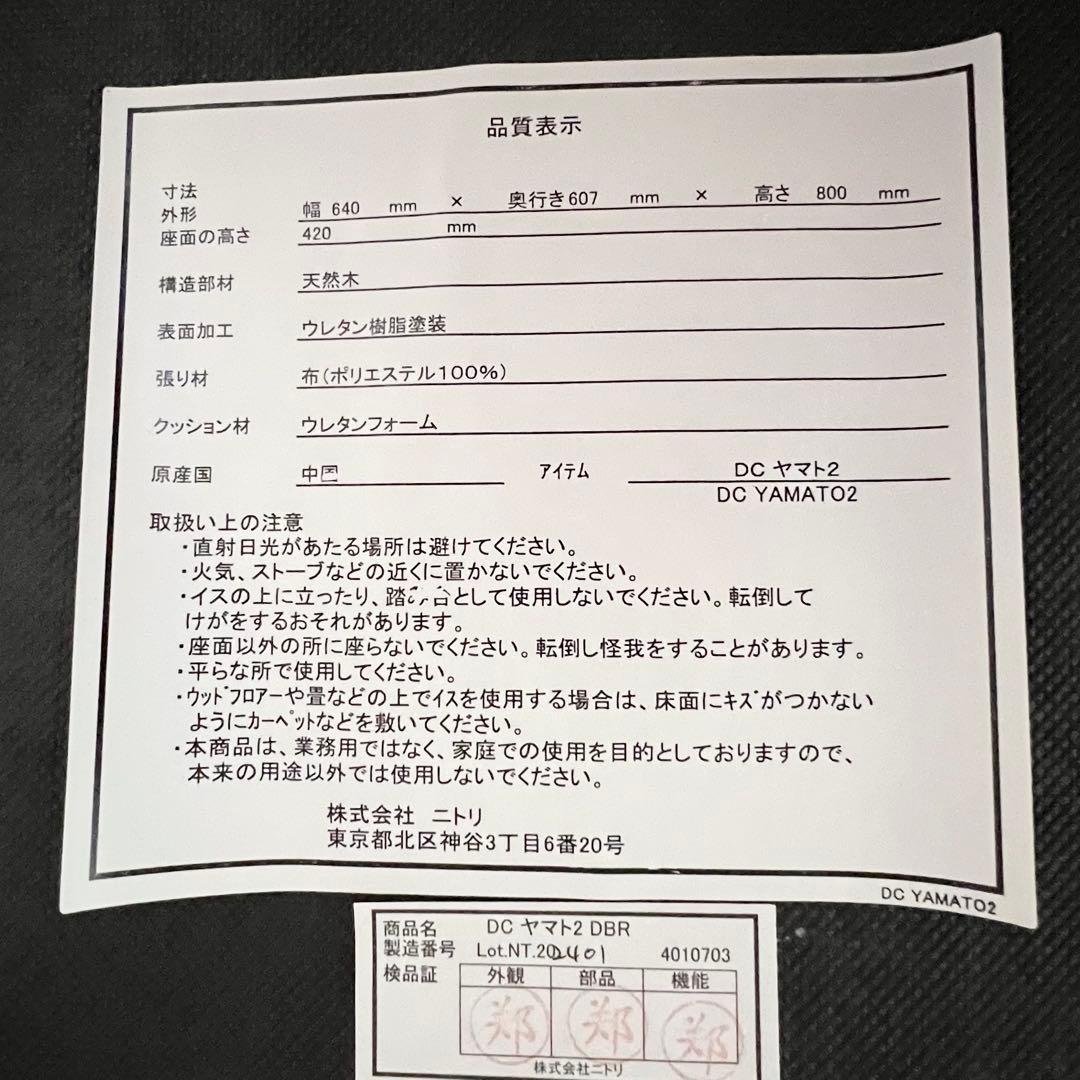 品質表示
寸法
外形 幅 640 mm × 奥行き607 mm × 高さ 800 mm
座面の高さ 420 mm
構造部材 天然木
表面加工 ウレタン樹脂塗装
張り材 布(ポリエステル100%)
クッション材 ウレタンフォーム
原産国 中国 アイテム DC ヤマト2
DC YAMATO2
取扱い上の注意
・直射日光があたる場所は避けてください。
・火気、ストーブなどの近くに置かないでください。
・イスの上に立ったり、踏み台として使用しないでください。転倒して
けがをするおそれがあります。
・座面以外の所に座らないでください。転倒し怪我をすることがあります。
・平らな所で使用してください。
・ウッドフロアーや畳などの上でイスを使用する場合は、床面にキズがつかない
ようにカーペットなどを敷いてください。
・本商品は、業務用ではなく、家庭での使用を目的としておりますので、
本来の用途以外では使用しないでください。
株式会社 ニトリ
東京都北区神谷3丁目6番20号
DC YAMATO2
商品名 DC ヤマト2 DBR
製造番号 Lot.NT.202401 4010703
検品証 外観 部品 機能
郑 郑 郑
株式会社ニトリ